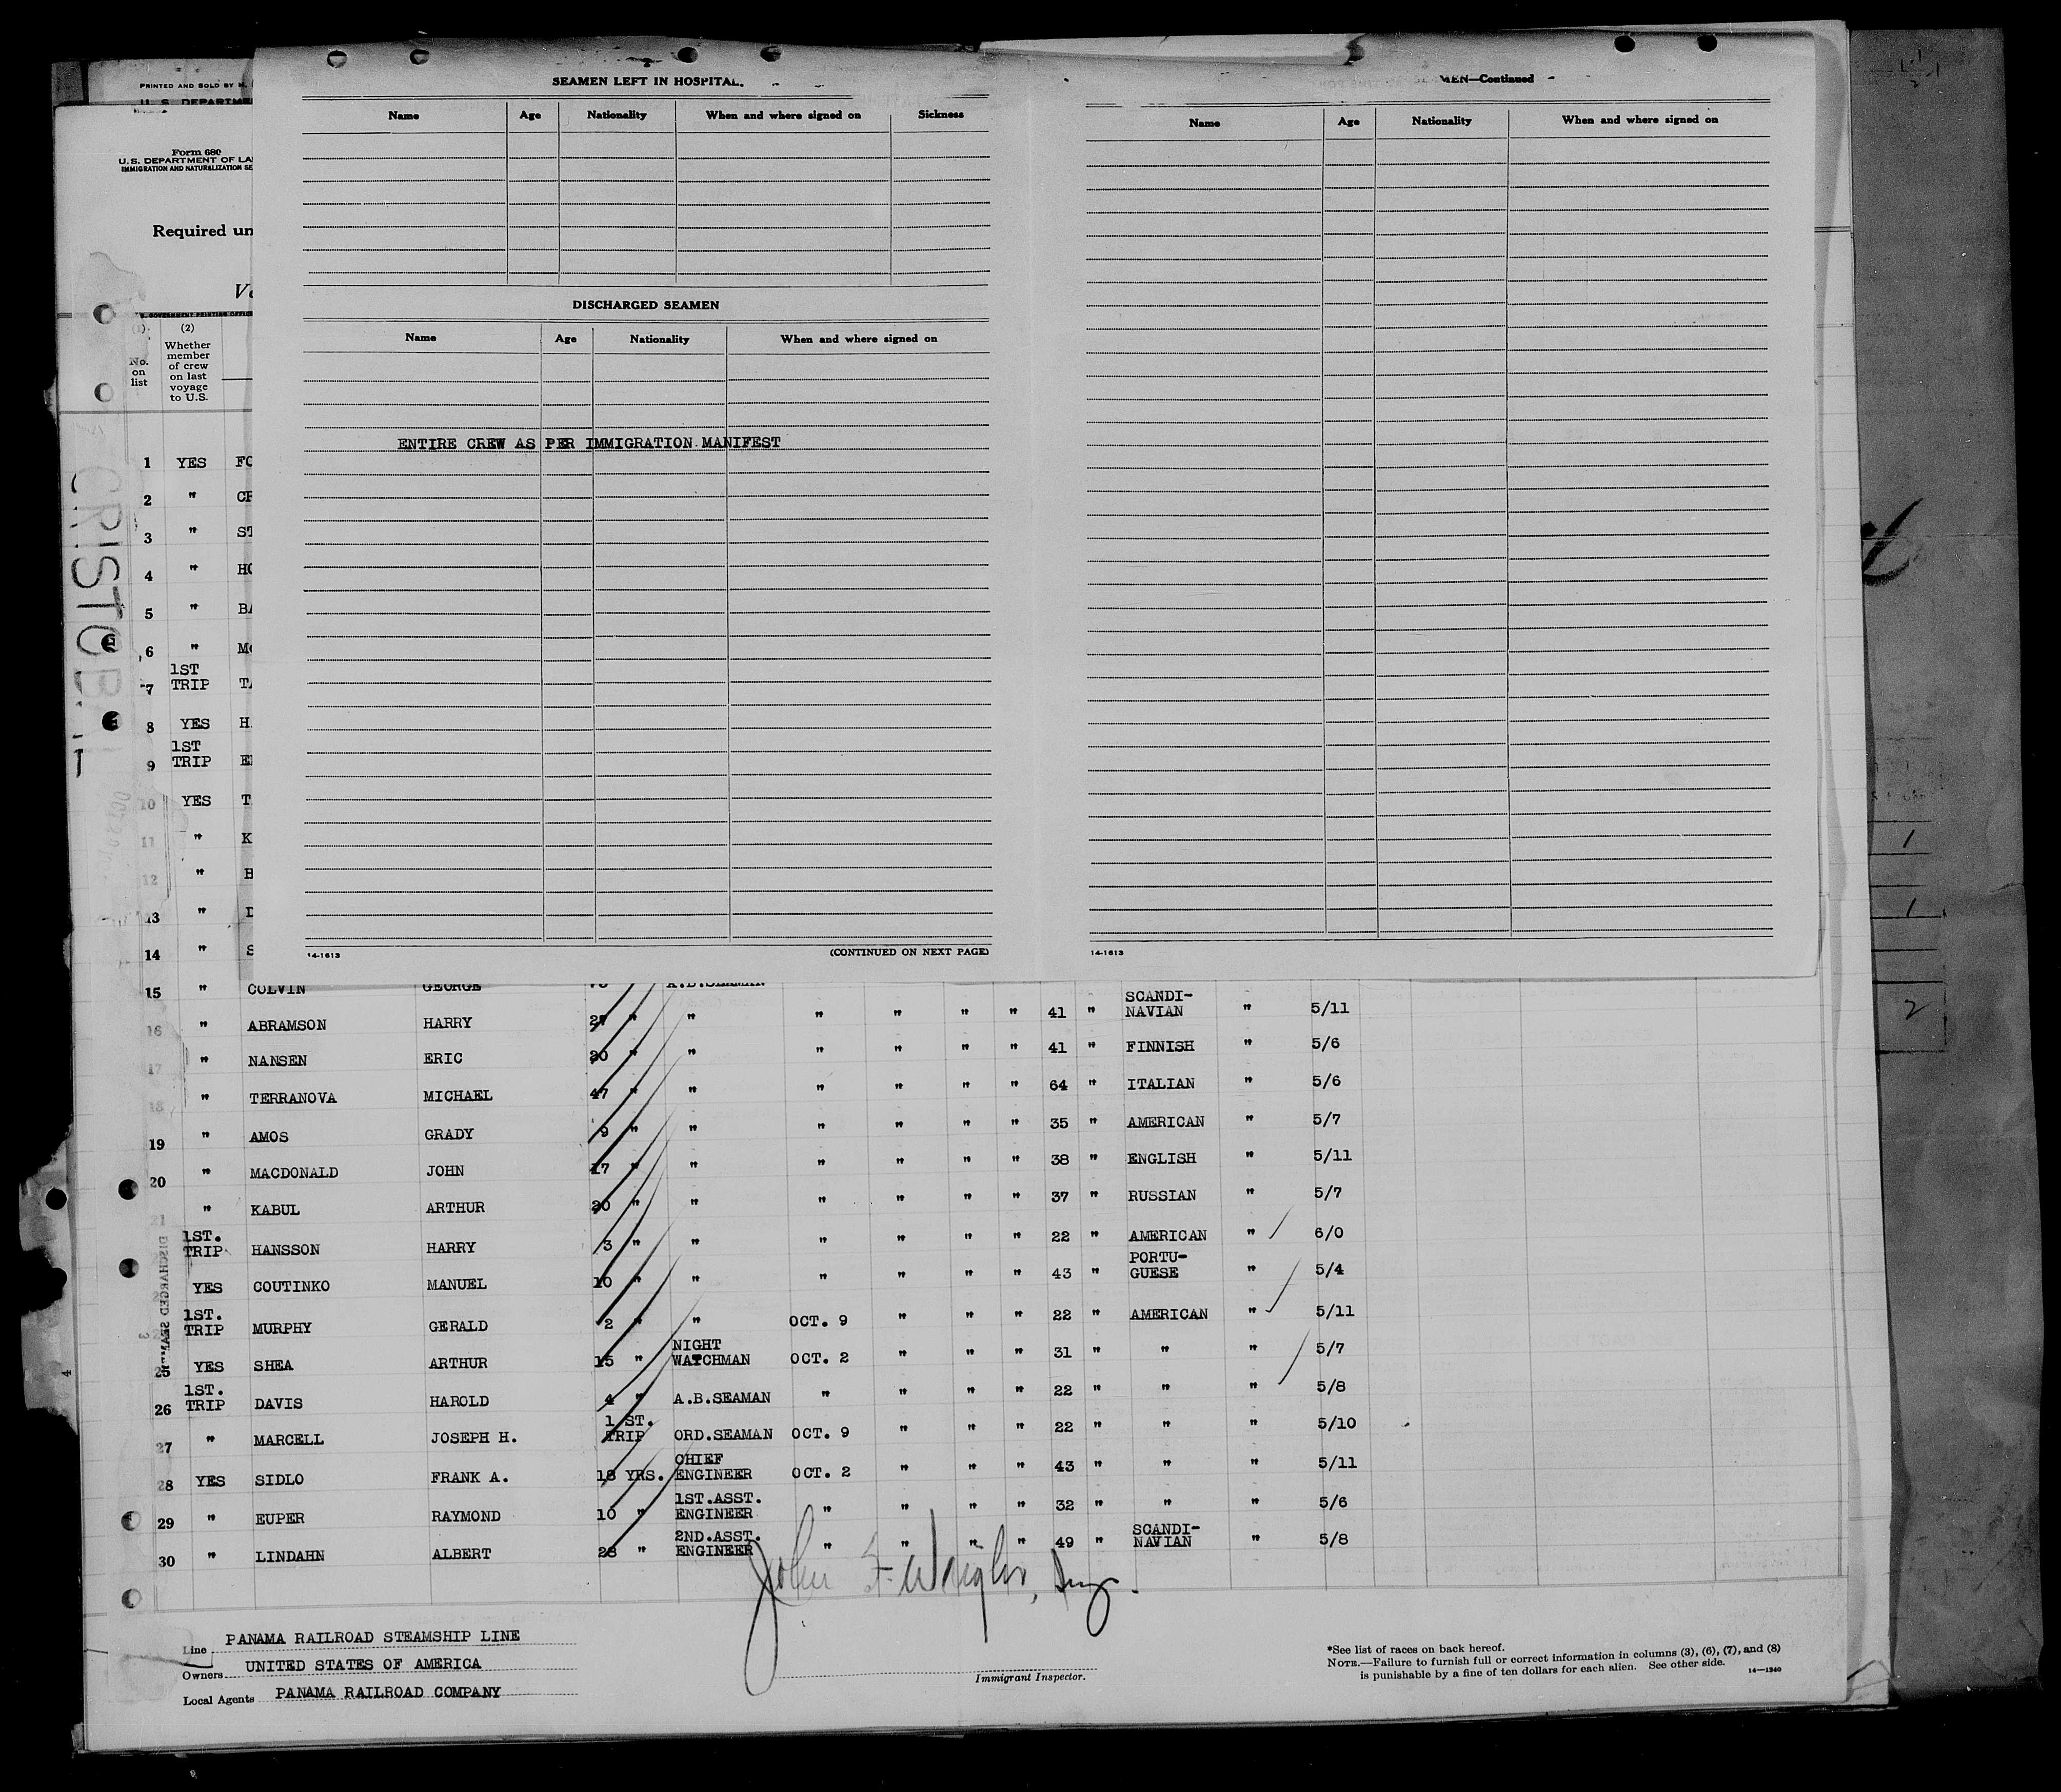 PRINTED AND SOLD BY
U. S. DEPARTME
Form 680
U.S. DEPARTMENT OF LA
IMMIGRATION AND NATURALIZATION SE
Required un
(2)
No. on list
Whether member of crew on last voyage to U.S.
CRISTOB
1 YES FO
2 " CR
3 " ST
4 " HO
5 " BA
6 " Mc
7 1ST TRIP TA
8 YES H
9 1ST TRIP E
10 YES T
11 " K
12 " H
13 " D
14 " S
SEAMEN LEFT IN HOSPITAL.
Name Age Nationality When and where signed on Sickness
DISCHARGED SEAMEN
Name Age Nationality When and where signed on
ENTIRE CREW AS PER IMMIGRATION MANIFEST
14-1613 (CONTINUED ON NEXT PAGE)
MEN—Continued
Name Age Nationality When and where signed on
14-1613
15 " COLVIN GEORGE A.B.SEAMAN
16 " ABRAMSON HARRY 27 " " " " " " 41 " SCANDI-NAVIAN " 5/11
17 " NANSEN ERIC 20 " " " " " " 41 " FINNISH " 5/6
18 " TERRANOVA MICHAEL 47 " " " " " " 64 " ITALIAN " 5/6
19 " AMOS GRADY 9 " " " " " " 35 " AMERICAN " 5/7
20 " MACDONALD JOHN 17 " " " " " " 38 " ENGLISH " 5/11
21 " KABUL ARTHUR 20 " " " " " " 37 " RUSSIAN " 5/7
1ST. TRIP HANSSON HARRY 3 " " " " " " 22 " AMERICAN " 6/0
YES COUTINKO MANUEL 10 " " " " " " 43 " PORTU-GUESE " 5/4
1ST. TRIP MURPHY GERALD 2 " " OCT. 9 " " " 22 " AMERICAN " 5/11
25 YES SHEA ARTHUR 15 " NIGHT WATCHMAN OCT. 2 " " " 31 " " " 5/7
26 1ST. TRIP DAVIS HAROLD 4 " A.B.SEAMAN " " " " 22 " " " 5/8
27 " MARCELL JOSEPH H. 1 ST. TRIP ORD.SEAMAN OCT. 9 " " " 22 " " " 5/10
28 YES SIDLO FRANK A. 18 YRS. CHIEF ENGINEER OCT. 2 " " " 43 " " " 5/11
29 " EUPER RAYMOND 10 " 1ST.ASST. ENGINEER " " " " 32 " " " 5/6
30 " LINDAHN ALBERT 28 " 2ND.ASST. ENGINEER " " " " 49 " SCANDI-NAVIAN " 5/8
DISCHARGED SEAMEN
Line PANAMA RAILROAD STEAMSHIP LINE
Owners UNITED STATES OF AMERICA
Local Agents PANAMA RAILROAD COMPANY
Immigrant Inspector.
*See list of races on back hereof.
NOTE.—Failure to furnish full or correct information in columns (3), (6), (7), and (8)
is punishable by a fine of ten dollars for each alien. See other side. 14—1240